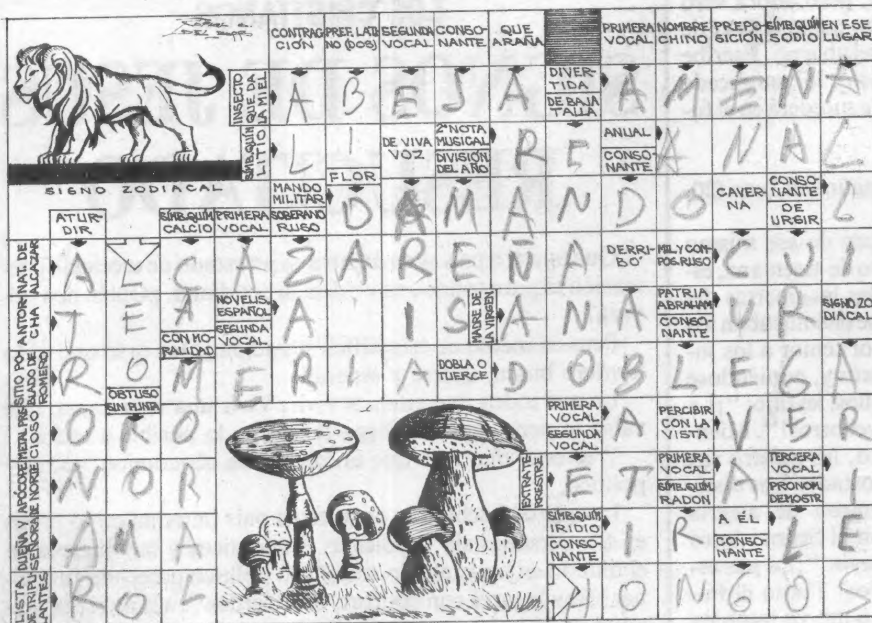 CONTRAC-
CIÓN PREF. LATI-
NO (DOS) SEGUNDA
VOCAL CONSO-
NANTE QUE
ARAÑA PRIMERA
VOCAL NOMBRE
CHINO PREPO-
SICIÓN SÍMB.QUÍM
SODIO EN ESE
LUGAR
INSECTO
QUE DA
LA MIEL A B E J A DIVER-
TIDA
DE BAJA
TALLA A M E N A
SÍMB.QUÍM
LITIO L I DE VIVA
VOZ 2ª NOTA
MUSICAL
DIVISIÓN
DEL AÑO R E ANUAL
CONSO-
NANTE A N A L
SIGNO ZODIACAL
MANDO
MILITAR
SOBERANO
RUSO FLOR D A M A N D O CAVER-
NA CONSO-
NANTE
DE
URGIR L
ATUR-
DIR SÍMB.QUÍM
CALCIO PRIMERA
VOCAL
NAT. DE
ALCAZAR A L C A Z A R E Ñ A DERRI-
BÓ MIL Y COM-
POS.RUSO C U I
ANTOR-
CHA T E A NOVELIS.
ESPAÑOL
SEGUNDA
VOCAL A I S MADRE DE
LA VIRGEN A N A PATRIA
ABRAHAM
CONSO-
NANTE U R SIGNO ZO
DIACAL
CON MO-
RALIDAD
SITIO PO-
BLADO DE
ROMERO R O M E R I A DOBLA O
TUERCE D O B L E G A
OBTUSO
SIN PUNTA
METAL PRE-
CIOSO O R O PRIMERA
VOCAL
SEGUNDA
VOCAL A PERCIBIR
CON LA
VISTA V E R
APÓCOPE
DE NORTE N O R EXTRATE-
RRESTRE E T PRIMERA
VOCAL
SÍMB.QUÍM
RADON A TERCERA
VOCAL
PRONOM.
DEMOSTR I
BUENA Y
SEÑORA A M A SÍMB.QUÍM
IRIDIO
CONSO-
NANTE I R A ÉL
CONSO-
NANTE L E
LISTA
DE TRIPU-
LANTES R O L H O N G O S